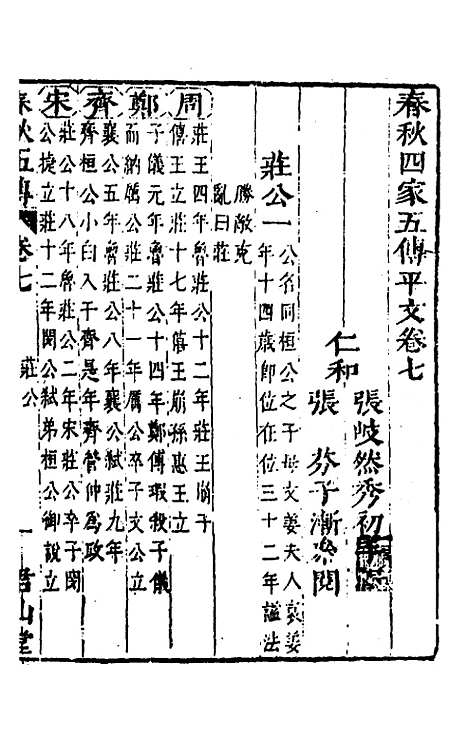 春秋四家五傳平文卷七
張岐然秀初
仁和
張 芬子漸參閱
莊公一
公名同桓公之子母文姜夫人哀姜
年十四歲即位在位三十二年謚法
勝敵克
亂曰莊
周
莊王四年魯莊公十二年莊王崩子
僖王立莊十七年僖王崩孫惠王立
鄭
子儀元年魯莊公十四年鄭傅瑕殺子儀
而納厲公莊二十一年厲公卒子文公立
齊
襄公五年魯莊公八年襄公弒莊九年
齊桓公小白入于齊是年齊管仲為政
宋
莊公十八年魯莊公二年宋莊公卒子閔
公捷立莊十二年閔公弒弟桓公御說立
春秋五傳 卷七 莊公 一 君山堂